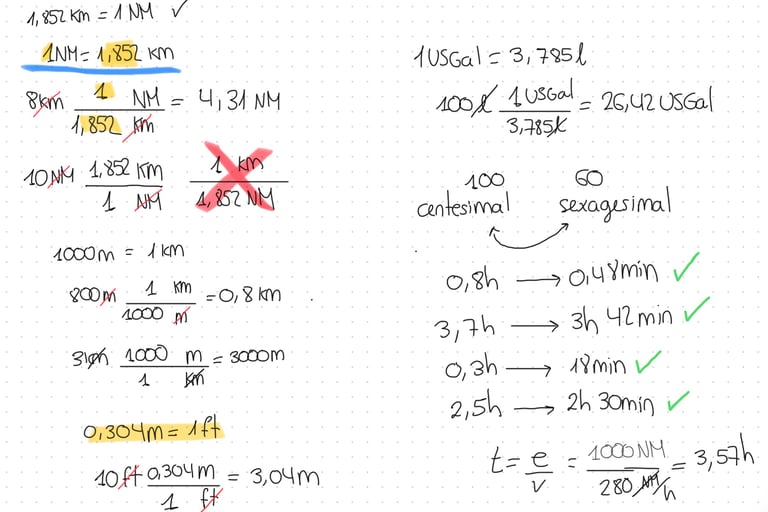 1,852 km = 1 NM ✓
1NM = 1,852 km
8km 1 NM / 1,852 km = 4,31 NM
10NM 1,852 KM / 1 NM 1 km / 1,852 NM
1000m = 1 km
800m 1 km / 1000 m = 0,8 km
3km 1000 m / 1 km = 3000m
0,304m = 1 ft
10ft 0,304m / 1 ft = 3,04m
1 USGal = 3,785l
100l 1 USGal / 3,785l = 26,42 USGal
100 60
centesimal sexagesimal
0,8h → 0,48min ✓
3,7h → 3h 42min ✓
0,3h → 18min ✓
2,5h → 2h 30min ✓
t = e / v = 1000 NM / 280 NM/h = 3,57h